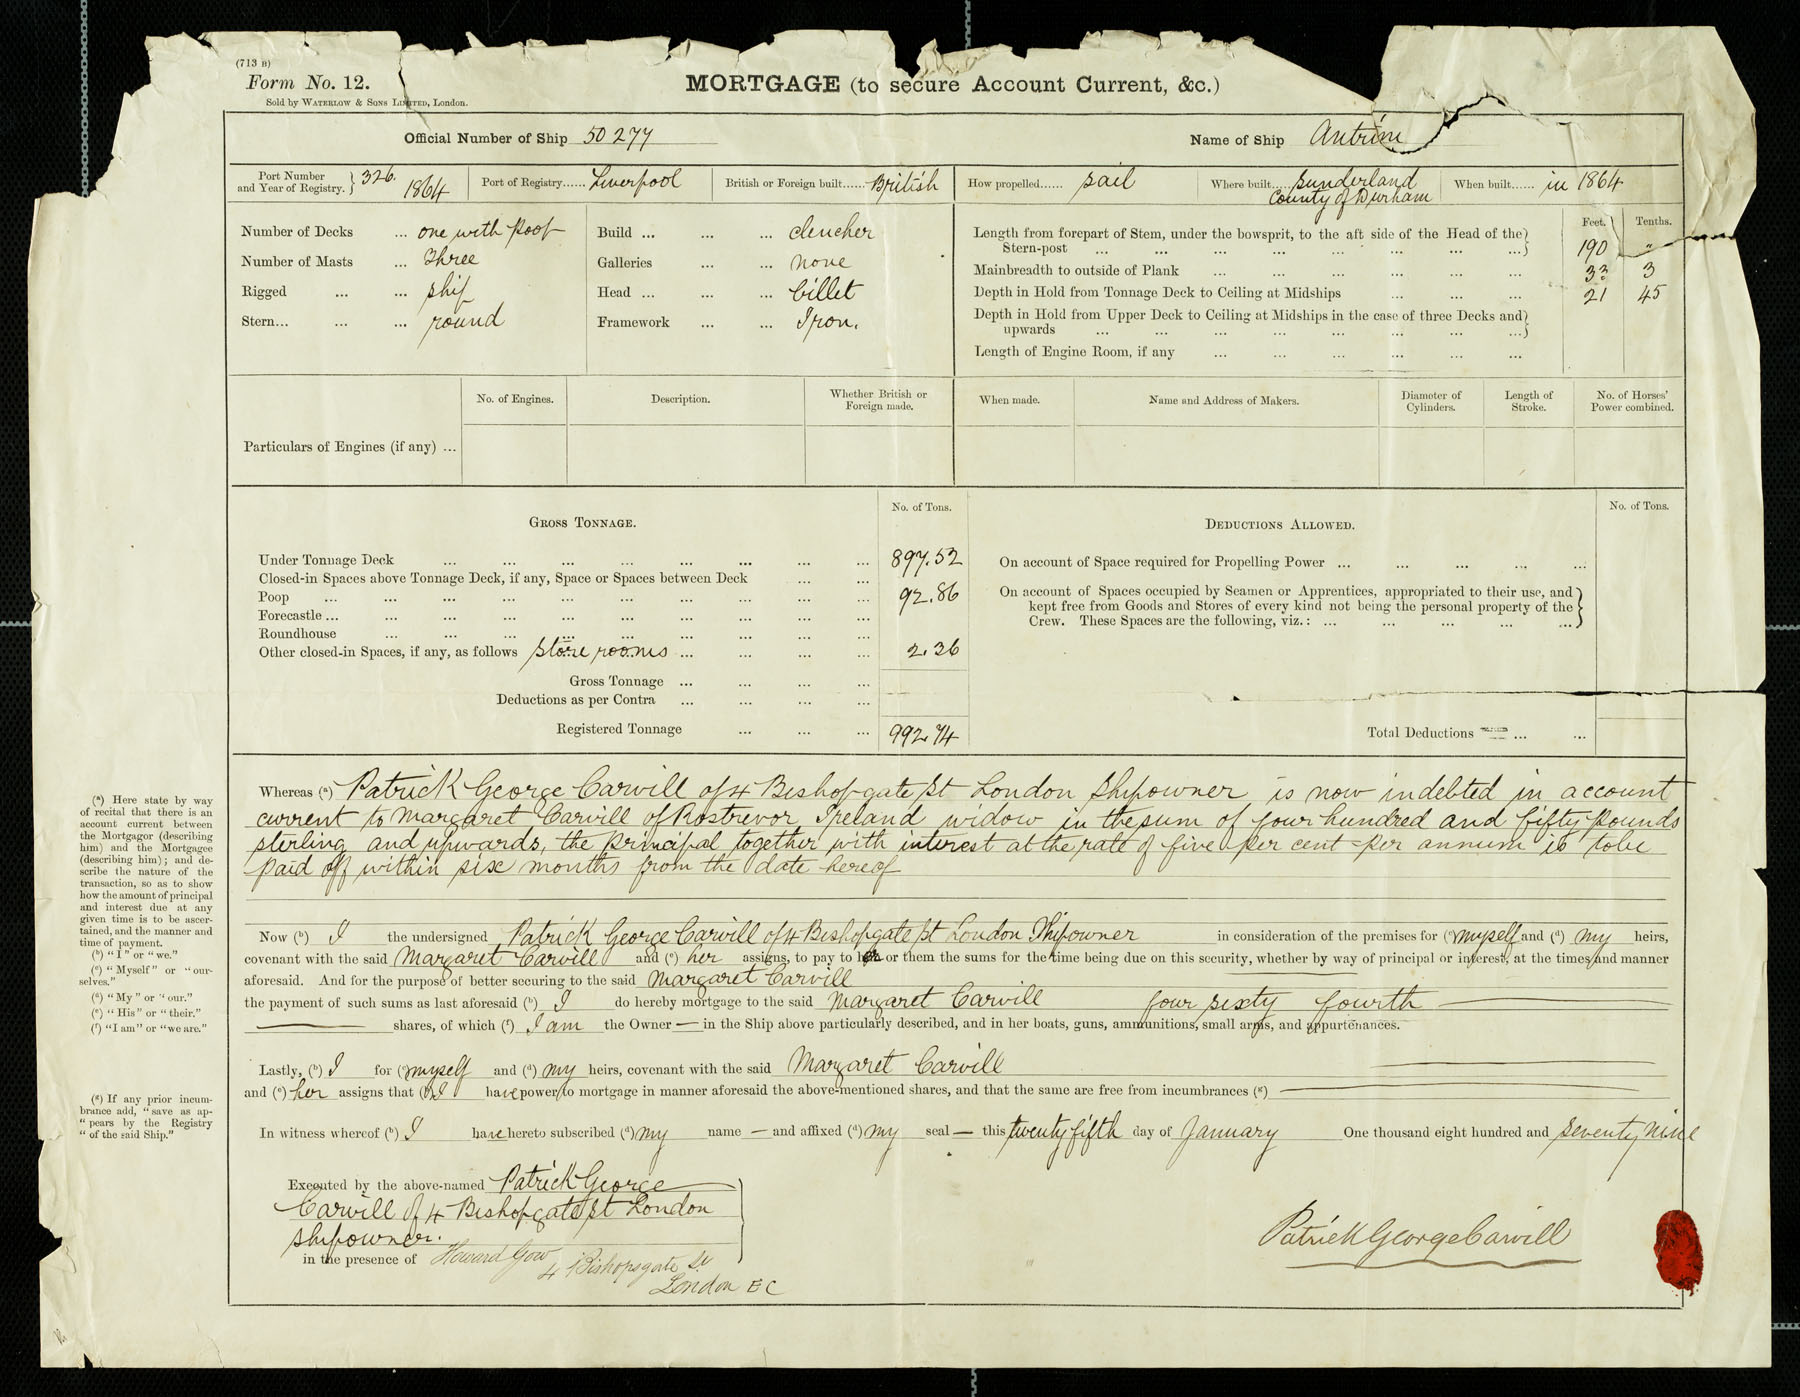 (713 B)
Form No. 12.
Sold by WATERLOW & SONS LIMITED, London.
MORTGAGE (to secure Account Current, &c.)
Official Number of Ship 50277
Name of Ship Antrim
Port Number and Year of Registry. } 326. 1864
Port of Registry...... Liverpool
British or Foreign built...... British
How propelled...... Sail
Where built.... Sunderland County of Durham
When built...... in 1864
Number of Decks ... one with poop
Number of Masts ... Three
Rigged ... ... Ship
Stern... ... ... round
Build ... ... ... clencher
Galleries ... ... none
Head ... ... ... billet
Framework ... ... Iron.
Feet. Tenths.
Length from forepart of Stem, under the bowsprit, to the aft side of the Head of the }
Stern-post ... ... ... ... ... ... ... ... } 190 "
Mainbreadth to outside of Plank ... ... ... ... ... ... 33 3
Depth in Hold from Tonnage Deck to Ceiling at Midships ... ... ... 21 45
Depth in Hold from Upper Deck to Ceiling at Midships in the case of three Decks and }
upwards ... ... ... ... ... ... ... ... }
Length of Engine Room, if any ... ... ... ... ... ...
Particulars of Engines (if any) ...
No. of Engines.
Description.
Whether British or Foreign made.
When made.
Name and Address of Makers.
Diameter of Cylinders.
Length of Stroke.
No. of Horses' Power combined.
GROSS TONNAGE.
No. of Tons.
Under Tonnage Deck ... ... ... ... ... ... ... ... 897.52
Closed-in Spaces above Tonnage Deck, if any, Space or Spaces between Deck ... ...
Poop ... ... ... ... ... ... ... ... ... ... 92.86
Forecastle ... ... ... ... ... ... ... ... ... ...
Roundhouse ... ... ... ... ... ... ... ... ...
Other closed-in Spaces, if any, as follows Store rooms ... ... ... ... 2.36
Gross Tonnage ... ... ... ...
Deductions as per Contra ... ... ... ...
Registered Tonnage ... ... ... 992.74
DEDUCTIONS ALLOWED.
No. of Tons.
On account of Space required for Propelling Power ... ... ... ... ...
On account of Spaces occupied by Seamen or Apprentices, appropriated to their use, and }
kept free from Goods and Stores of every kind not being the personal property of the }
Crew. These Spaces are the following, viz.: ... ... ... ... ... }
Total Deductions ... ...
Whereas (a) Patrick George Carvill of 4 Bishopgate St London Shipowner is now indebted in account
current to Margaret Carvill of Rostrevor Ireland widow in the sum of four hundred and fifty pounds
sterling and upwards, the principal together with interest at the rate of five per cent per annum is to be
paid off within six months from the date hereof
Now (b) I the undersigned Patrick George Carvill of 4 Bishopgate St London Shipowner in consideration of the premises for (c) myself and (d) my heirs,
covenant with the said Margaret Carvill and (e) her assigns, to pay to her or them the sums for the time being due on this security, whether by way of principal or interest, at the times and manner
aforesaid. And for the purpose of better securing to the said Margaret Carvill
the payment of such sums as last aforesaid (b) I do hereby mortgage to the said Margaret Carvill four sixty fourth
shares, of which (f) I am the Owner — in the Ship above particularly described, and in her boats, guns, ammunitions, small arms, and appurtenances.
Lastly, (b) I for (c) myself and (d) my heirs, covenant with the said Margaret Carvill
and (e) her assigns that (b) I have power to mortgage in manner aforesaid the above-mentioned shares, and that the same are free from incumbrances (g)
In witness whereof (b) I have hereto subscribed (d) my name — and affixed (d) my seal — this twenty fifth day of January One thousand eight hundred and seventy nine
Executed by the above-named Patrick George
Carvill of 4 Bishopgate St London
Shipowner.
in the presence of Howard Gow
4 Bishopsgate St
London EC
Patrick George Carvill
(a) Here state by way
of recital that there is an
account current between
the Mortgagor (describing
him) and the Mortgagee
(describing him); and de-
scribe the nature of the
transaction, so as to show
how the amount of principal
and interest due at any
given time is to be ascer-
tained, and the manner and
time of payment.
(b) "I" or "we."
(c) "Myself" or "our-
selves."
(d) "My" or "our."
(e) "His" or "their."
(f) "I am" or "we are."
(g) If any prior incum-
brance add, "save as ap-
"pears by the Registry
"of the said Ship."